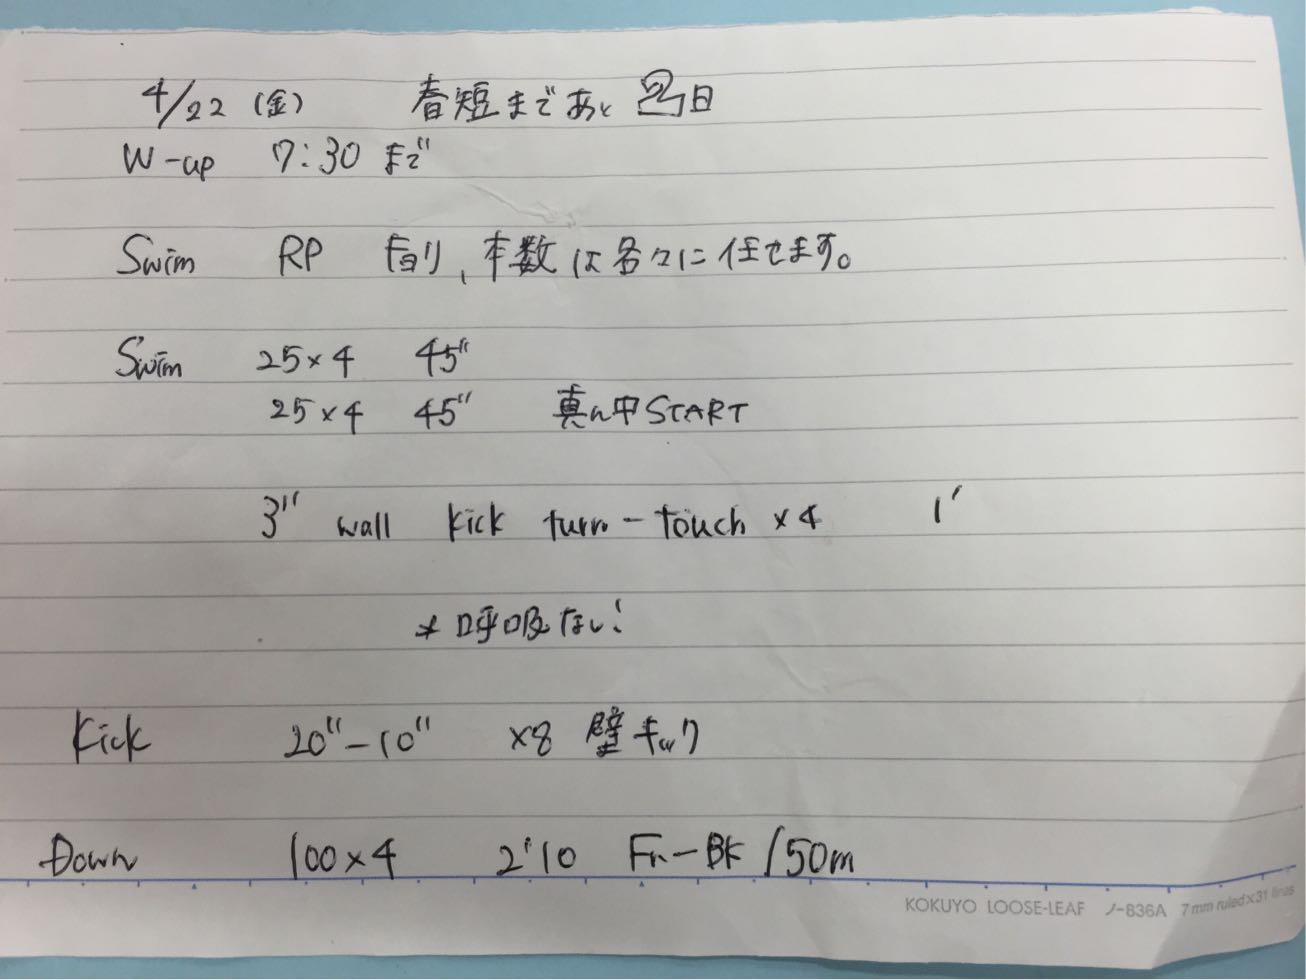 4/22 (金) 春短まであと 2日
W-up 7:30 まで
Swim RP 有り、本数は各々に任せます。
Swim 25×4 45"
25×4 45" 真ん中START
3" wall kick turn-touch ×4 1'
* 呼吸なし!
Kick 20"-10" ×8 壁キック
Down 100×4 2'10 Fr-BK /50m
KOKUYO LOOSE-LEAF ノ-836A 7mm ruled×31 lines